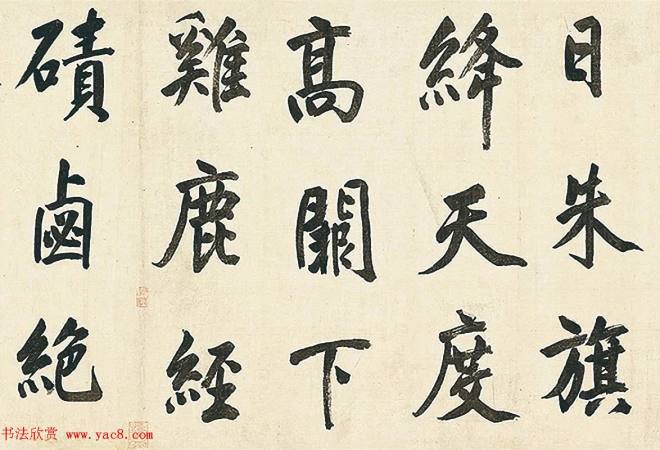 日朱旗
絳天度
髙闕下
雞鹿經
磧鹵絕
书法欣赏 www.yac8.com